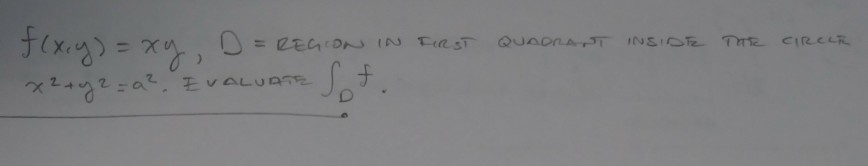 f(x,y) = xy, D = REGION IN FIRST QUADRANT INSIDE THE CIRCLE
x²+y²=a². EVALUATE ∫_D f.